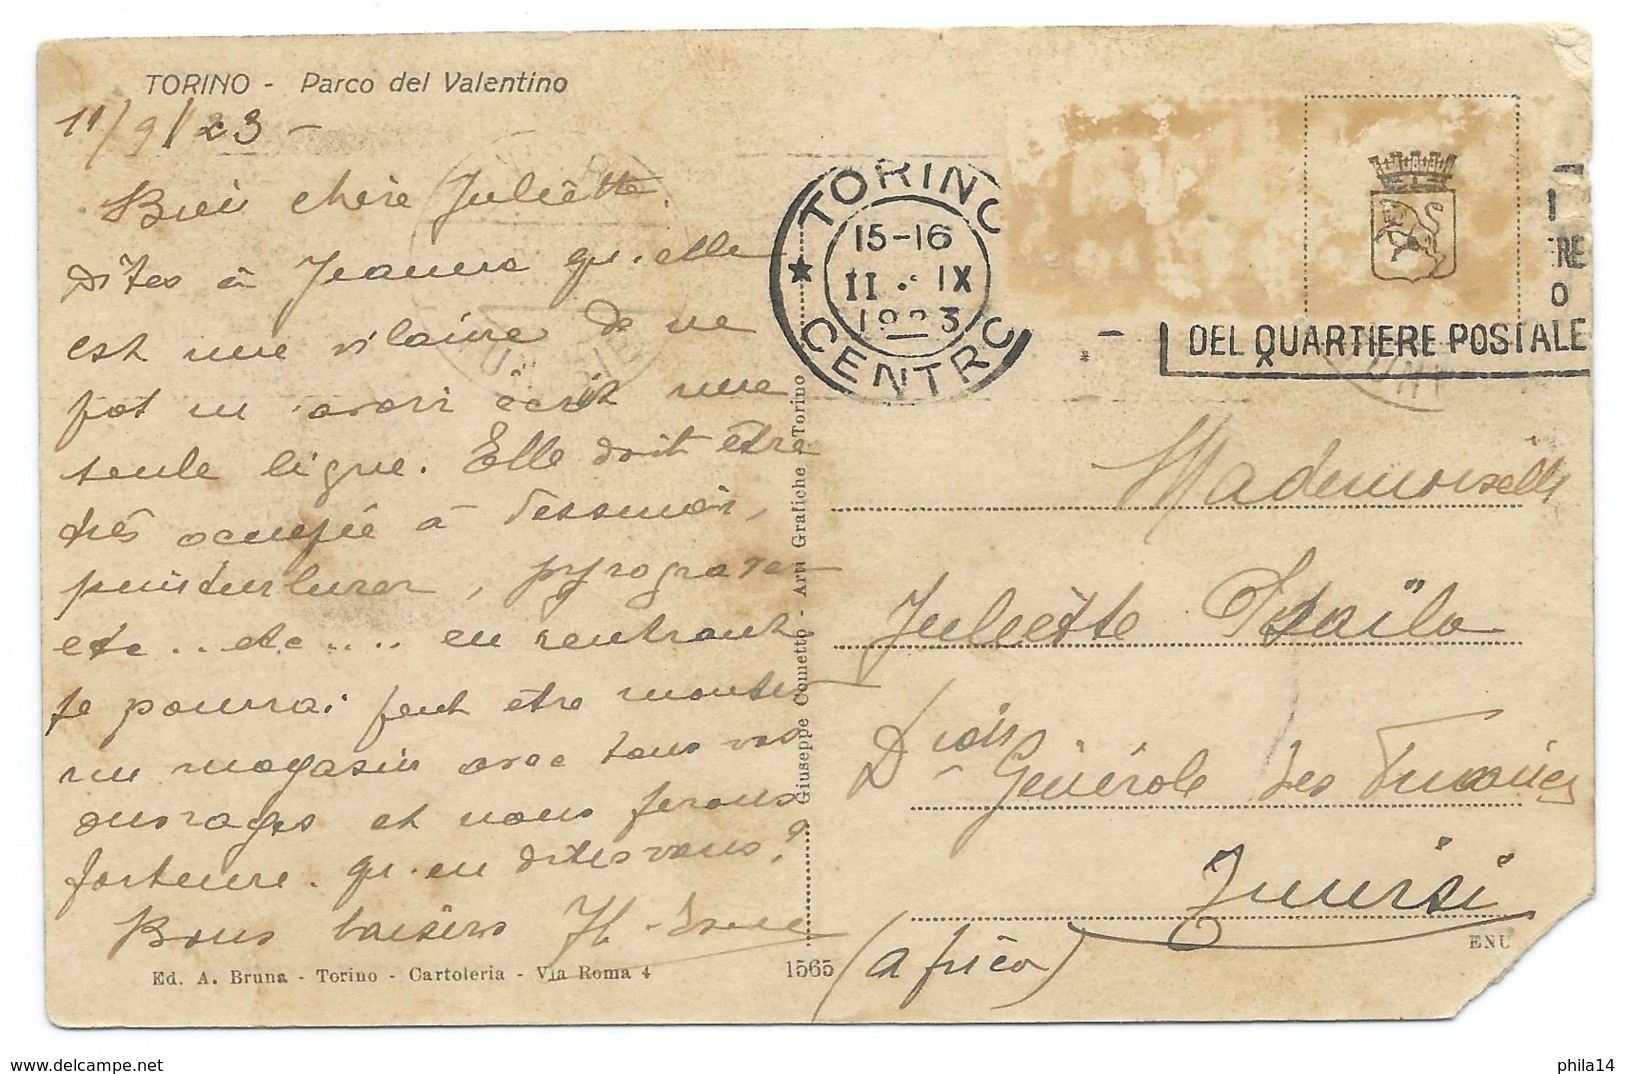 TORINO - Parco del Valentino
11/9/23 -
Bien chère Juliette.
dites à Jeanne qu'elle
est une vilaine de ne
pas m'avoir écrit une
seule ligne. Elle doit être
très occupée à dessiner,
peinturlurer, pyrograver
etc.. etc.... en rentrant
je pourrai peut être monter
un magasin avec tous vos
ouvrages et nous ferons
fortune. qu'en dites vous?
Bons baisers
Ed. A. Bruna - Torino - Cartoleria - Via Roma 4
1565
Giuseppe Cometto - Arti Grafiche - Torino
TORINO
15-16
11 · IX
1923
CENTRO
RE
O
DEL QUARTIERE POSTALE
Mademoiselle
Juliette
Don Générale des Finances
Tunisi
(Africa)
ENU
phila14
www.delcampe.net